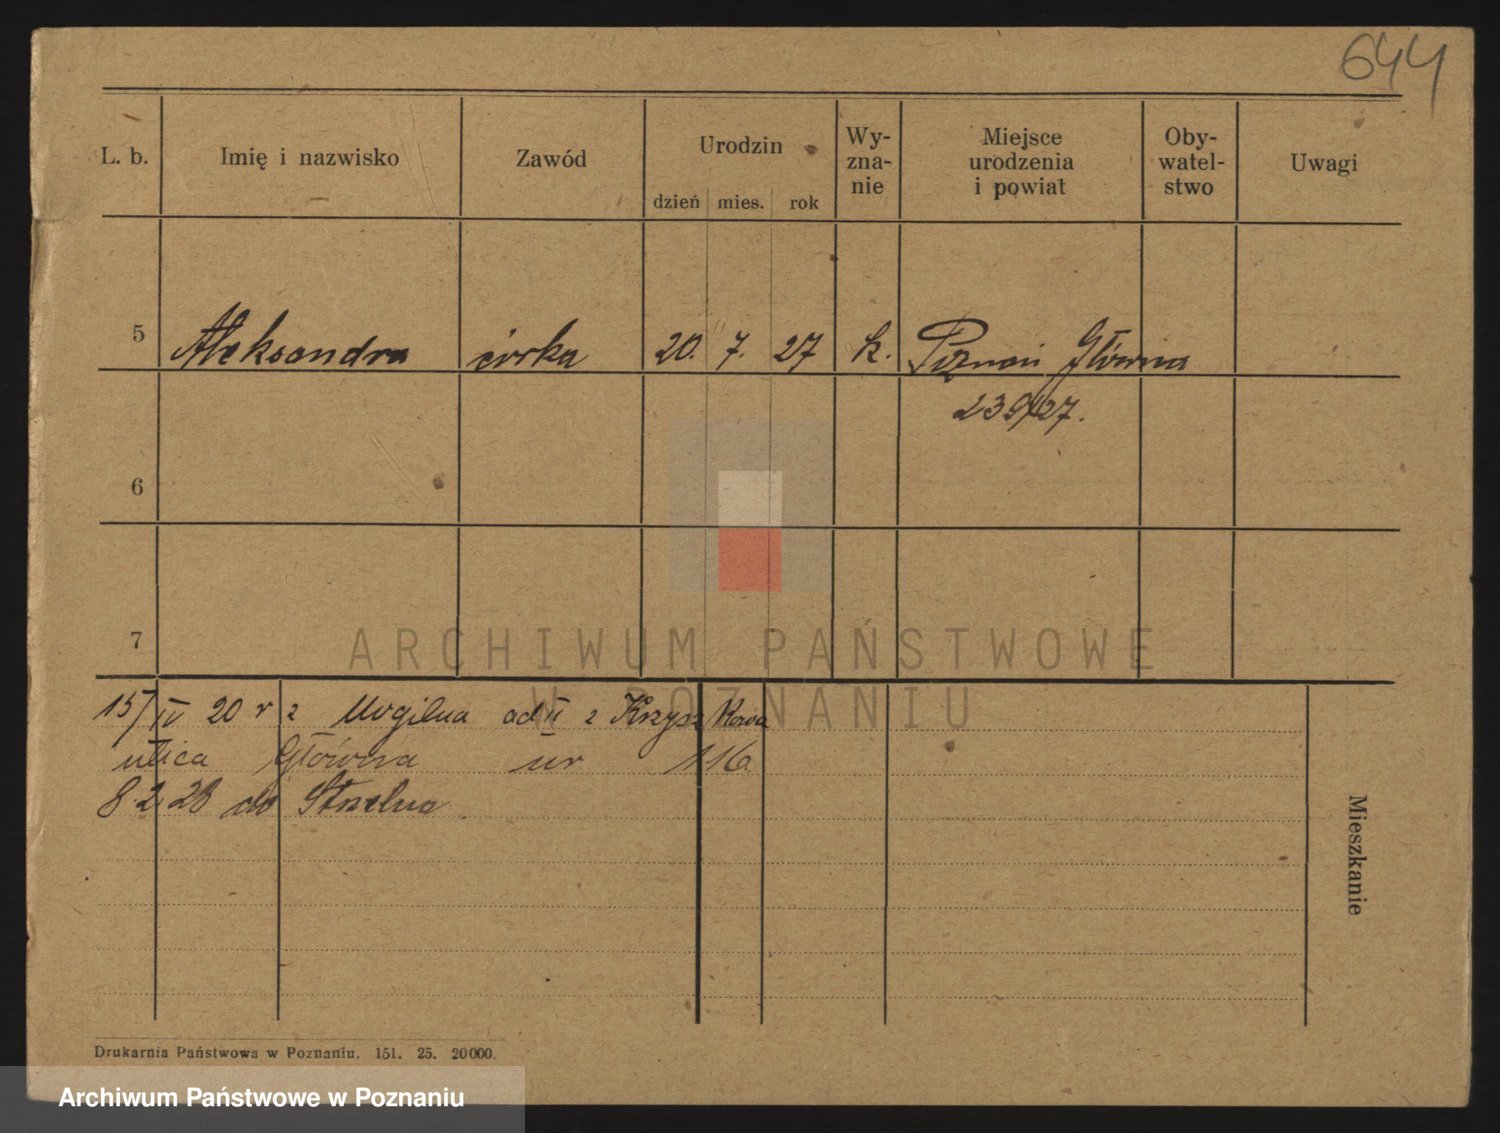 644
L. b. Imię i nazwisko Zawód Urodzin Wy-zna-nie Miejsce urodzenia i powiat Oby-watel-stwo Uwagi
dzień mies. rok
5 Aleksandra córka 20. 7. 27 k. Poznań Główna
239/27.
6
7
ARCHIWUM PAŃSTWOWE
W POZNANIU
15/IV 20 r z Mogilna ad II z Krzyszkowa
ulica Główna nr 116
8.2.28 do Strzelna
Mieszkanie
Drukarnia Państwowa w Poznaniu. 151. 25. 20000.
Archiwum Państwowe w Poznaniu